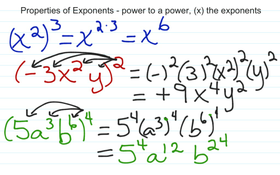 Properties of Exponents - power to a power, (x) the exponents
(x²)³ = x^(2·3) = x⁶
(-3x²y)² = (-)²(3)²(x²)²(y)²
= +9x⁴y²
(5a³b⁶)⁴ = 5⁴(a³)⁴(b⁶)⁴
= 5⁴a¹²b²⁴